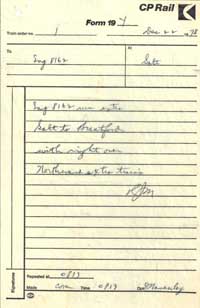 CP Rail
Form 19 Y
Train order no. 1 Dec 22 1978
To At
Eng 8162 Galt
Eng 8162 run extra
Galt to Brantford
with right over
Northward extra trains
Repeated at 0813
Made com Time 0813 Opr
Signatures